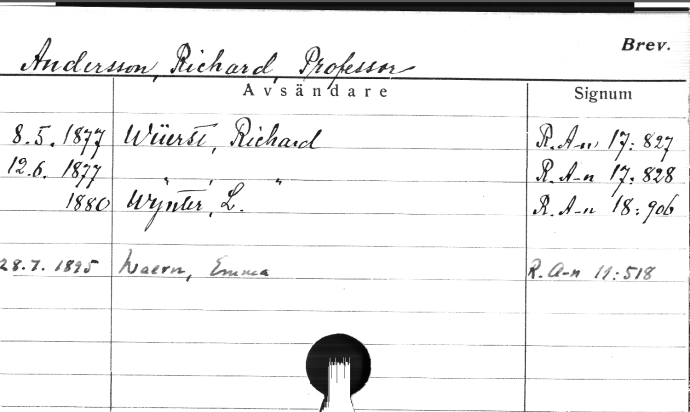 Brev.
Andersson, Richard, Professor
Avsändare Signum
8.5.1877 Wüerst, Richard R.A-n 17:827
12.6.1877 " " R.A-n 17:828
1880 Wynter, L. R.A-n 18:906
28.7.1895 Waern, Emma R.A-n 11:518